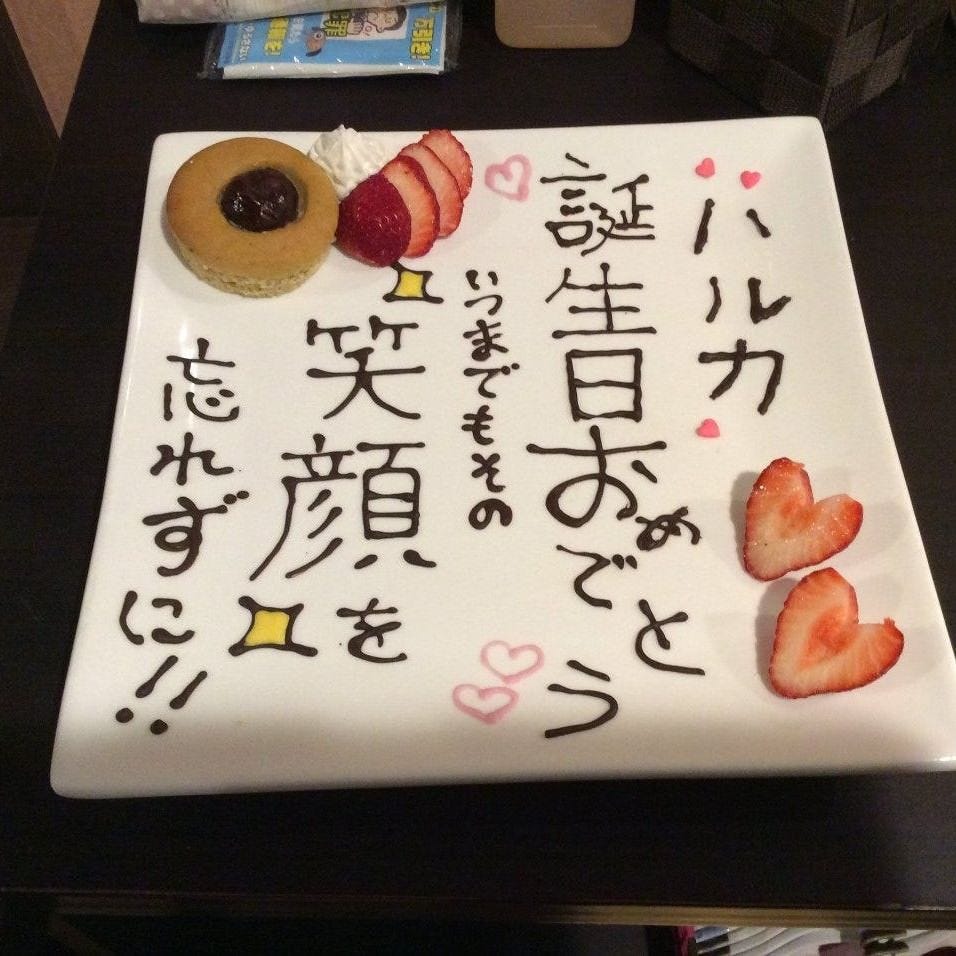 ハルカ
誕生日おめでとう
いつまでもその
笑顔を
忘れずに!!